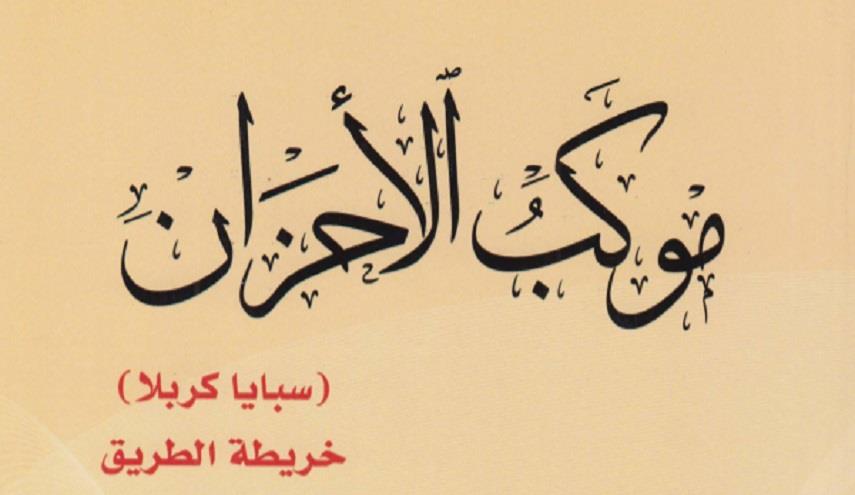 موكب الأحزان
(سبايا كربلا)
خريطة الطريق